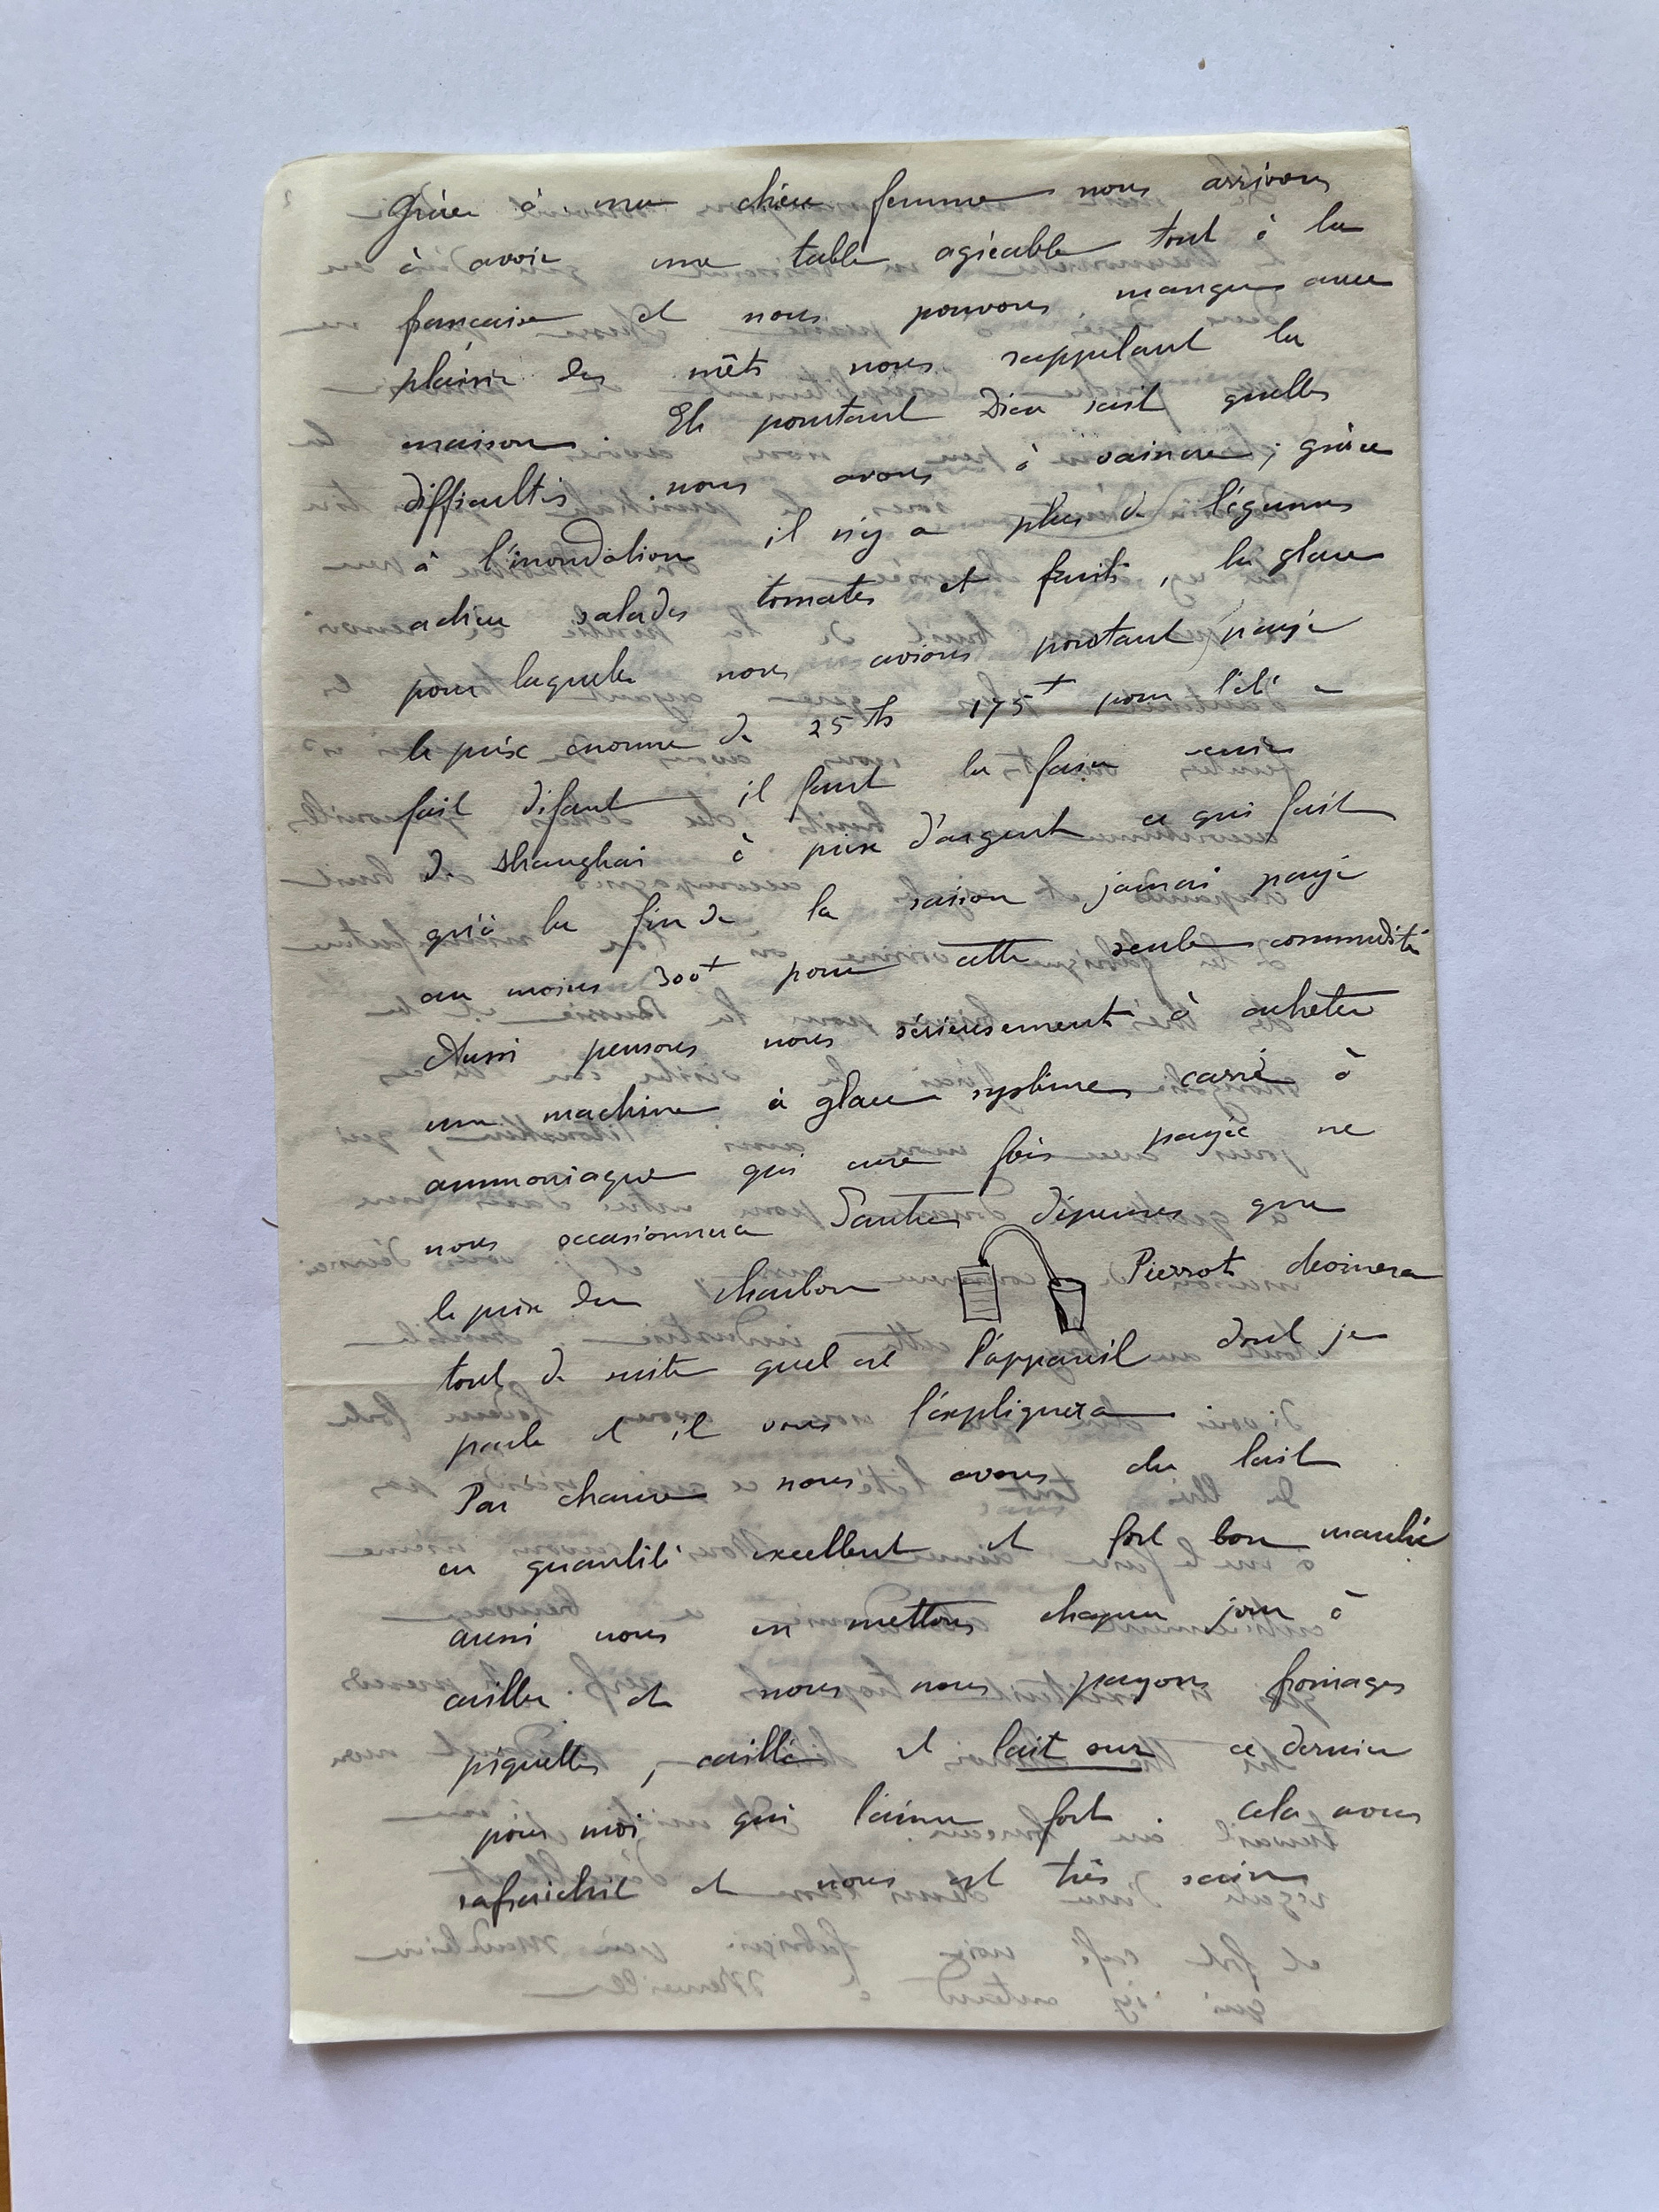 Grâce à ma chère femme nous arrivons
à avoir une table agréable tout à la
française et nous pouvons manger avec
plaisir des mêts nous rappelant la
maison. Et pourtant Dieu sait quelles
difficultés nous avons à vaincre; grâce
à l'inondation il n'y a plus de légumes
adieu salades tomates et fruits, la glace
pour laquelle nous avions pourtant payé
le prix énorme de 25 ts 175+ pour l'été a
fait défaut il faut la faire venir
de Shanghai à prix d'argent ce qui fait
qu'à la fin de la saison jamais payé
au moins 300+ pour cette seule commodité
Aussi pensons nous sérieusement à acheter
une machine à glace système carré à
ammoniaque qui une fois payée ne
nous occasionnera d'autres dépenses que
le prix du charbon Pierrot devinera
tout de suite quel est l'appareil dont je
parle et il vous l'expliquera.
Par chance nous avons du lait
en quantité excellent et fort bon marché
aussi nous en mettons chaque jour à
cailler et nous nous payons fromages
piquettes, caillé et lait sur ce dernier
pour moi qui l'aime fort. Cela vous
rafraichit et nous est très sain